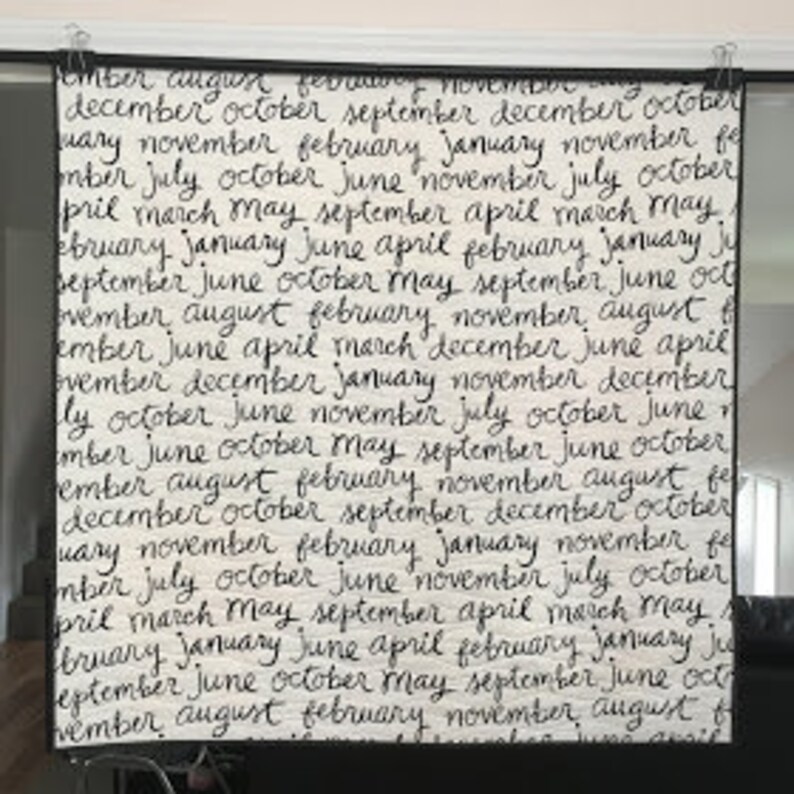 ember august february november august
december october september december october
uary november february january november fe
mber july october june november july october
pril march may september april march may
ebruary january june april february january ju
september june october may september june oct
ovember august february november august f
ember june april march december june april
ovember december january november december
ly october june november july october june n
mber june october may september june october
ember august february november august fe
december october september december october
uary november february january november fe
mber july october june november july october
pril march may september april march may
bruary january june april february january ju
eptember june october may september june oct
vember august february november august f
june april